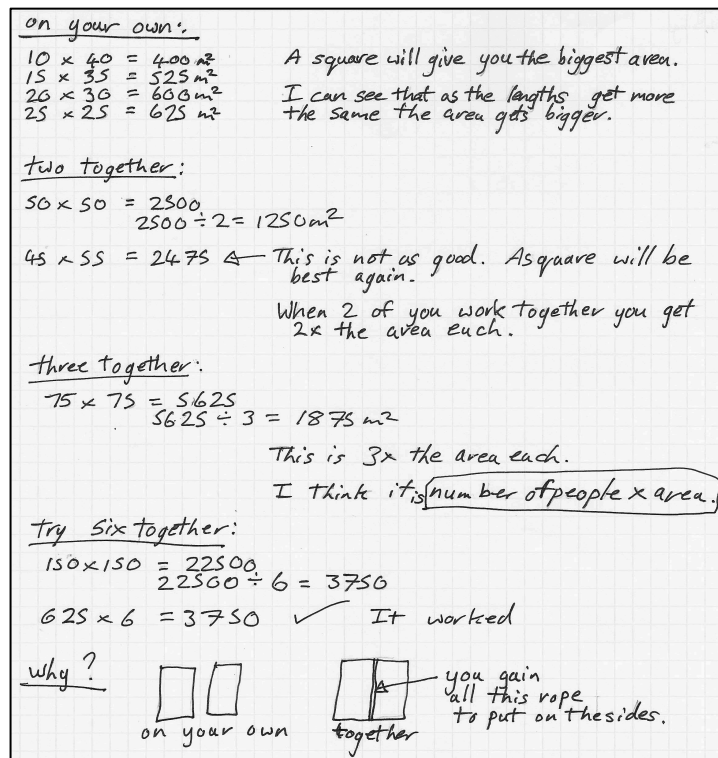 on your own:
10 x 40 = 400 m²
15 x 35 = 525 m²
20 x 30 = 600 m²
25 x 25 = 625 m²
A square will give you the biggest area.
I can see that as the lengths get more
the same the area gets bigger.
two together:
50 x 50 = 2500
2500 ÷ 2 = 1250 m²
45 x 55 = 2475 ← This is not as good. A square will be
best again.
When 2 of you work together you get
2x the area each.
three together:
75 x 75 = 5625
5625 ÷ 3 = 1875 m²
This is 3x the area each.
I think it is number of people x area.
try six together:
150 x 150 = 22500
22500 ÷ 6 = 3750
625 x 6 = 3750 ✓ It worked
why?
on your own
together
you gain
all this rope
to put on the sides.